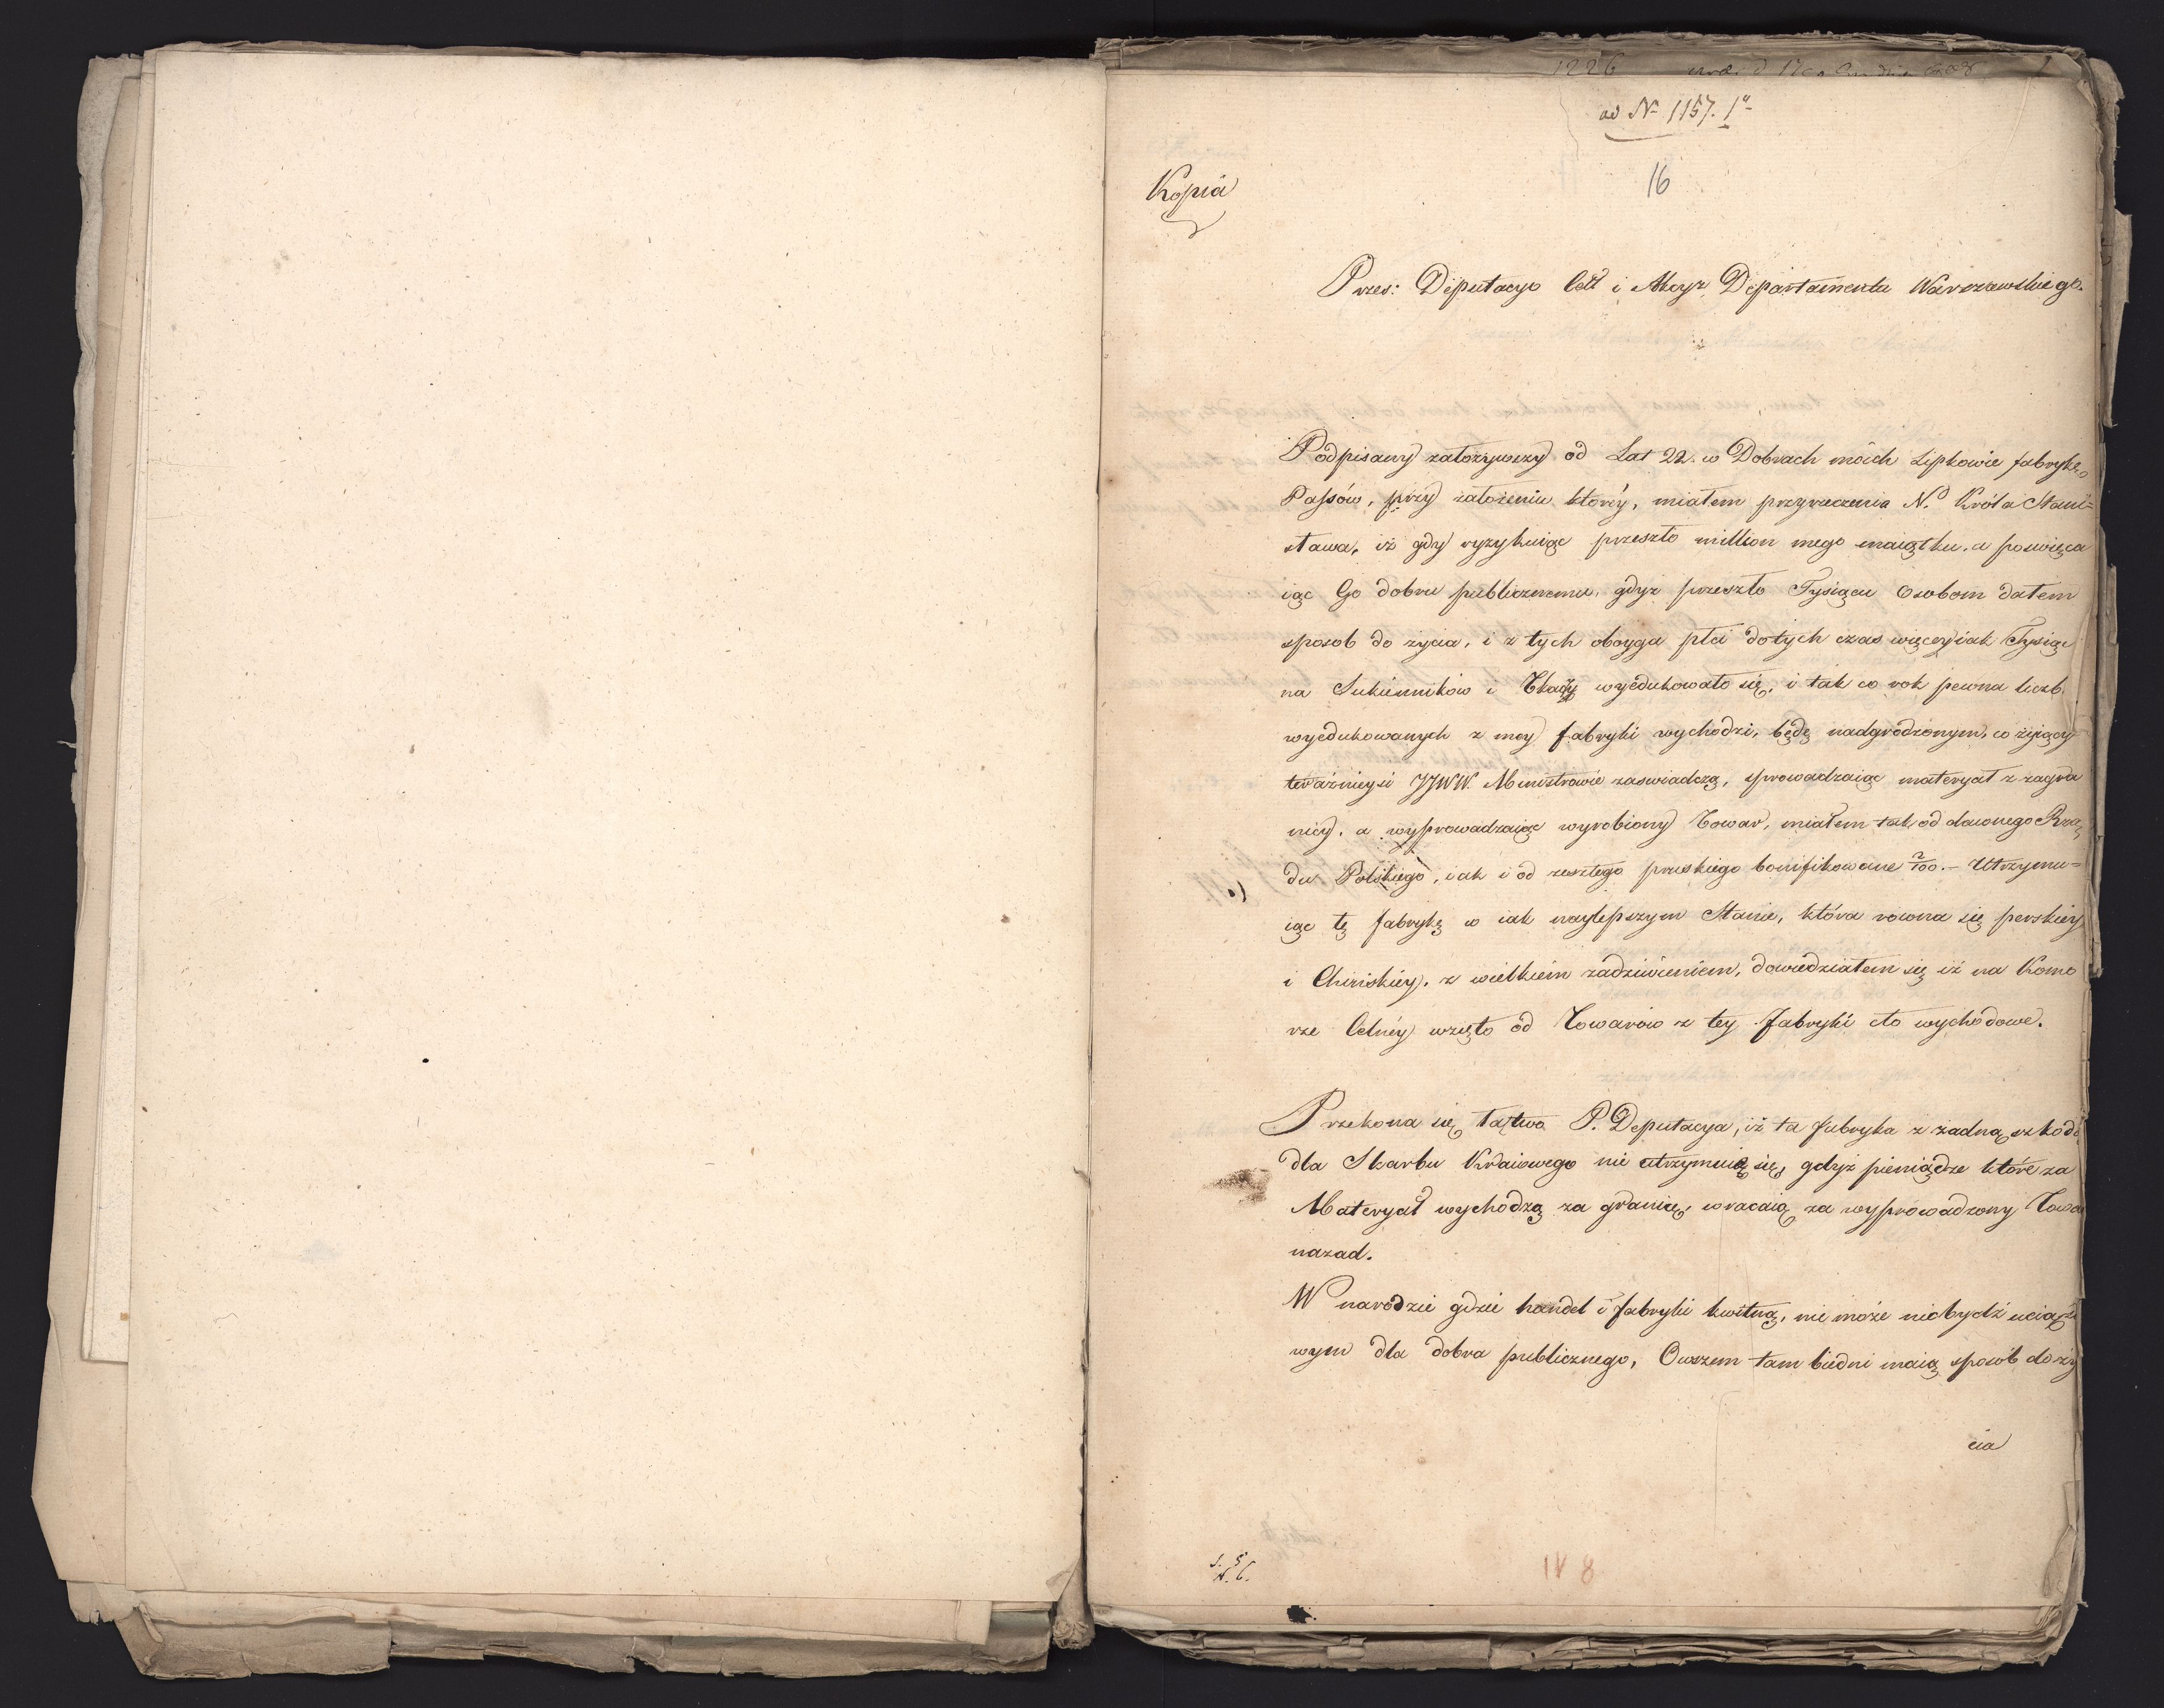 1226
ad N 1157. 1
16
Kopia
Przes: Deputacyo Ceł i Akcyz Departamentu Warszawskiego.
Podpisany założywszy od Lat 22. w Dobrach moich Lipkowie fabrykę
Passów, przy założeniu którey, miałem przyrzeczenia N. Króla Stani=
sława, iż gdy ryzykuiąc przeszło million mego maiątku, a poswięca
iąc Go dobru publicznemu, gdyż przeszło Tysiącu Osobom dałem
sposob do życia, i z tych oboyga płci dotych czas więcey iak Tysiąc
na Sukienników i Tkaczy wyedukowało się, i tak co rok pewna liczb
wyedukowanych z mey fabryki wychodzi, będę nadgrodzonym, co żyiący
teraznieysi JJWW. Ministrowie zaswiadczą, sprowadzaiąc materyał z zagra
nicy, a wyprowadzaiąc wyrobiony Towar, miałem tak od dawnego Rzą
du Polskiego, iak i od zeszłego pruskiego bonifikowane 2/100. – Utrzymu=
iąc tę fabrykę w iak naylepszym Stanie, która rowna się perskiey
i Chińskiey, z wielkiem zadziwieniem, dowiedziałem się iż na Komo
rze Celney wzięto od Towarów z tey fabryki cło wychodowe.
Przekona się łatwo P. Deputacya, iż ta fabryka z żadną szkodą
dla Skarbu Kraiowego nie utrzymuię się, gdyż pieniądze które za
Materyał wychodzą za granicę, wracaią za wyprowadzony Towa
nazad.
W narodzie gdzie handel i fabryki kwitną, nie może niebydź uciążli
wym dla dobra publicznego, Owszem tam biedni maią sposób do ży
cia
IV 8